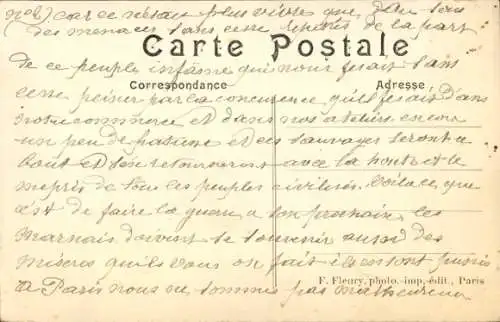 no2) car ce n'était plus vivre que d'en
des menaces sans cesse répétés de la part
Carte Postale
de ce peuple infâme qui nous fesait sans
Correspondance
Adresse
cesse peiner par la concurence qu'il fesait dans
notre commerce et dans nos ateliers encore
un peu de patience et ces sauvages seront a
bout et s'en retourneront avec la honte et le
mepris de tous les peuples civilisés. Voila ce que
c'est de faire la guerre a son prochain les
Marnais doivent se souvenir aussi des
miseres qu'ils vous on fait ils seront punis
F. Fleury, photo.-imp.-édit., Paris
A Paris nous ne sommes pas malheureux